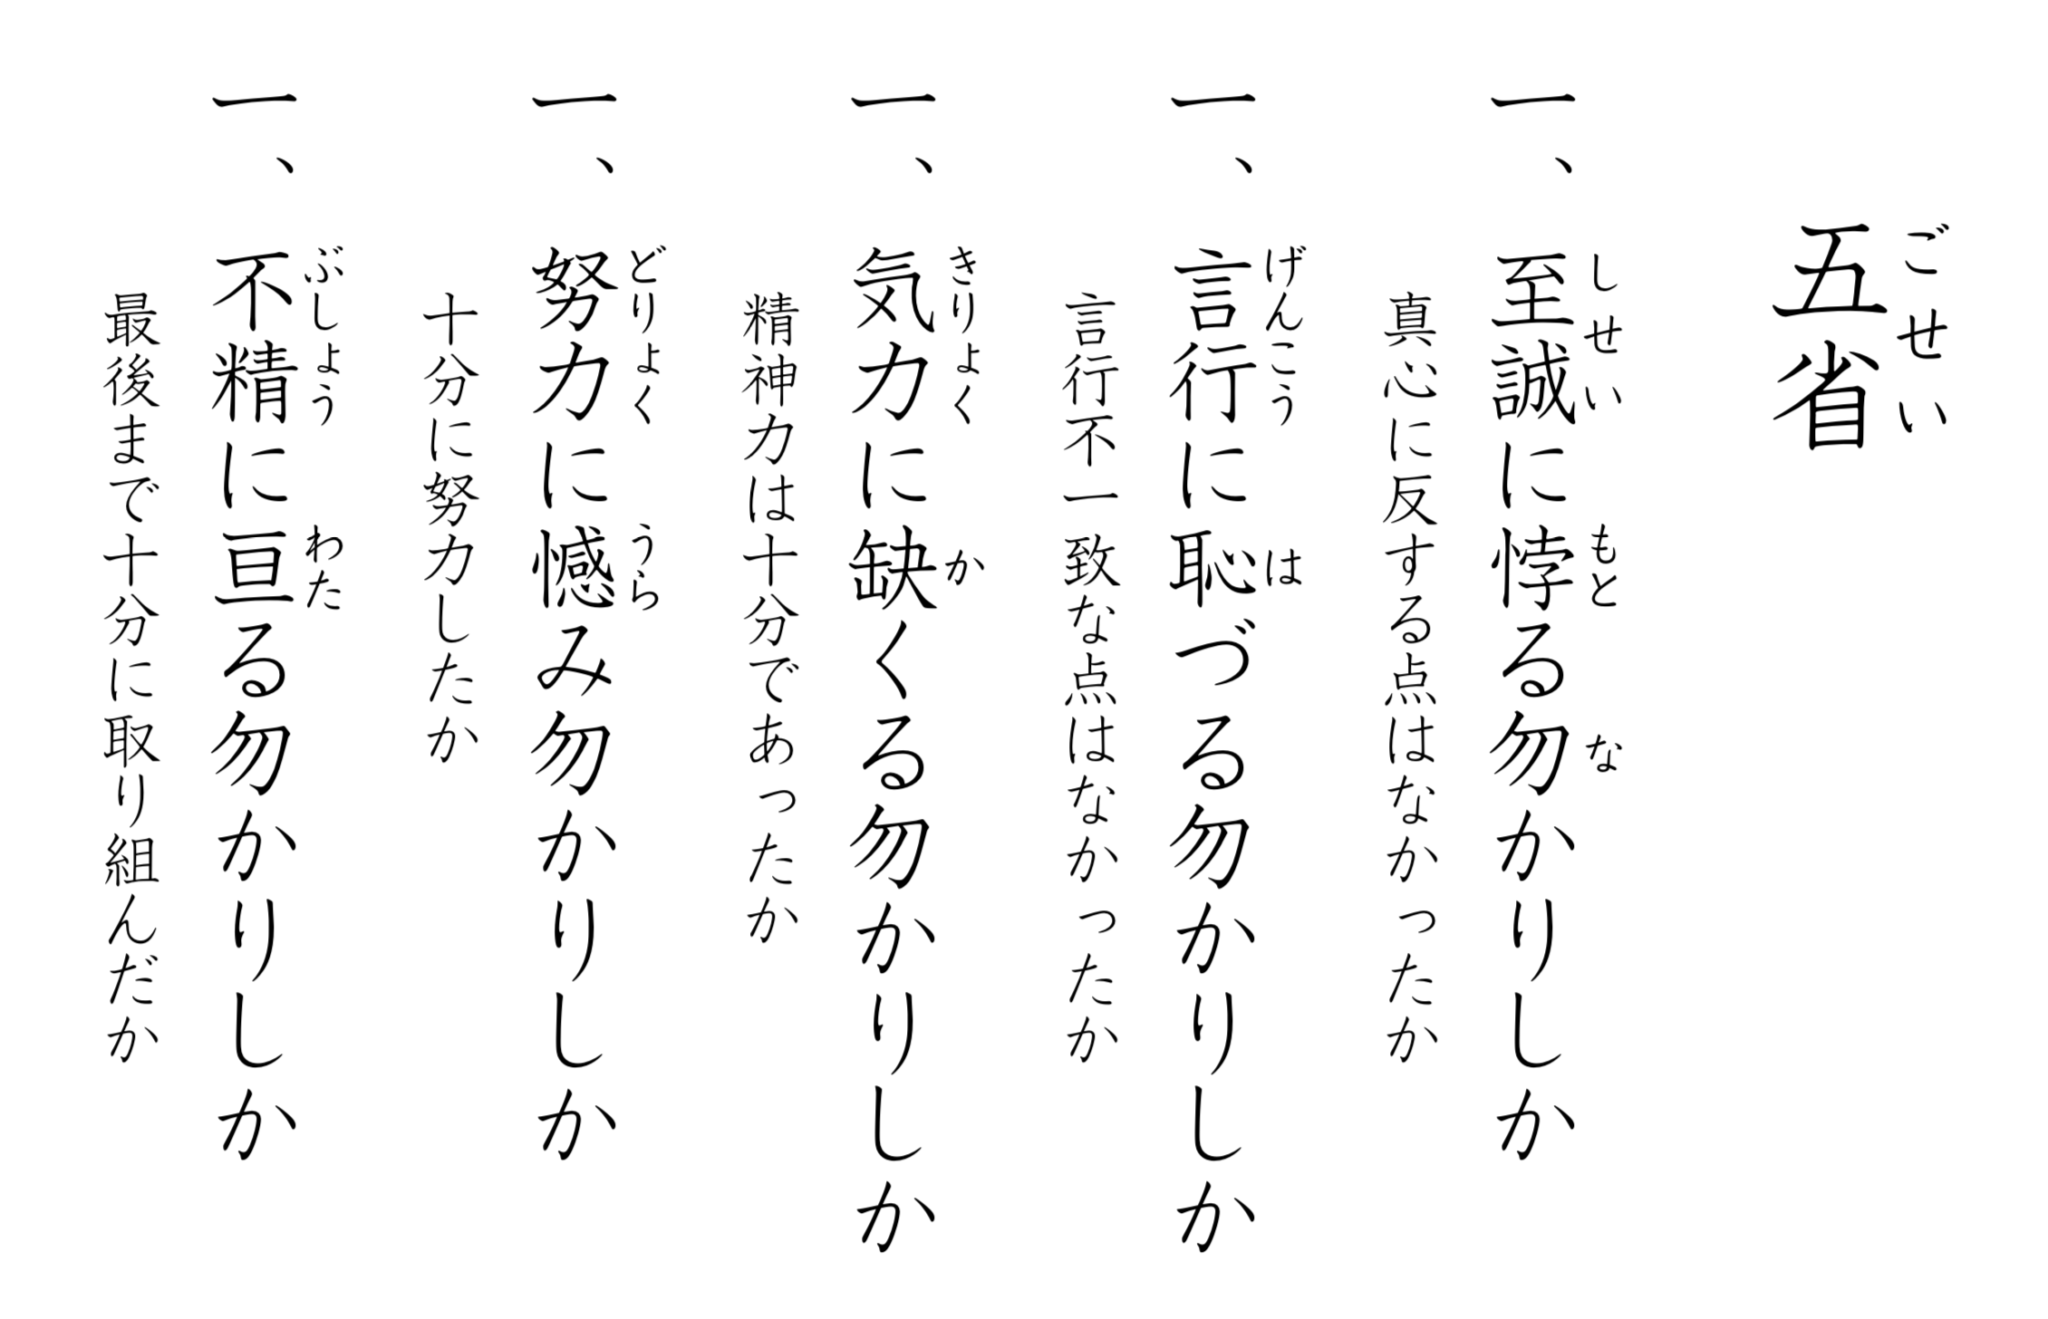 五省
ごせい
一、至誠に悖る勿かりしか
しせい もと な
真心に反する点はなかったか
一、言行に恥づる勿かりしか
げんこう は
言行不一致な点はなかったか
一、気力に缺くる勿かりしか
きりょく か
精神力は十分であったか
一、努力に憾み勿かりしか
どりょく うら
十分に努力したか
一、不精に亘る勿かりしか
ぶしょう わた
最後まで十分に取り組んだか